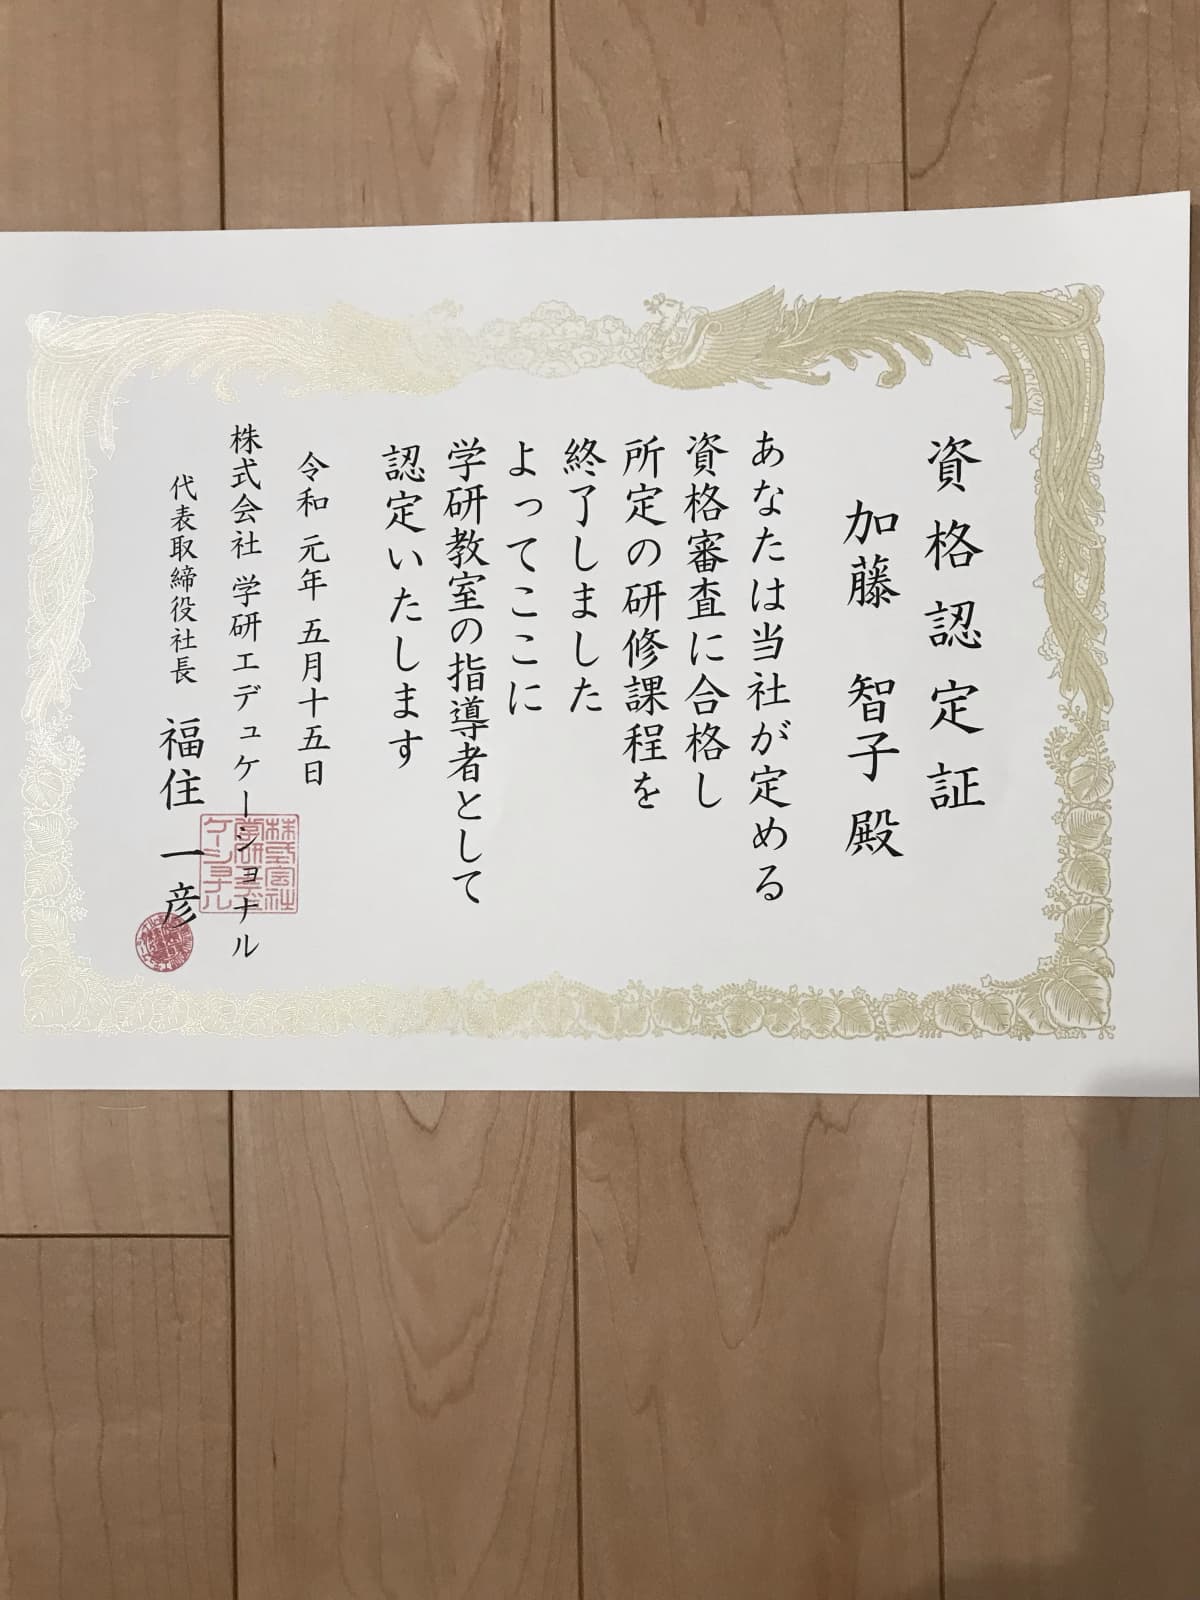 資格認定証
加藤 智子殿
あなたは当社が定める
資格審査に合格し
所定の研修課程を
終了しました
よってここに
学研教室の指導者として
認定いたします
令和 元年 五月十五日
株式会社 学研エデュケーショナル
代表取締役社長 福住 一彦
株式会社
学研エデュ
ケーショナル